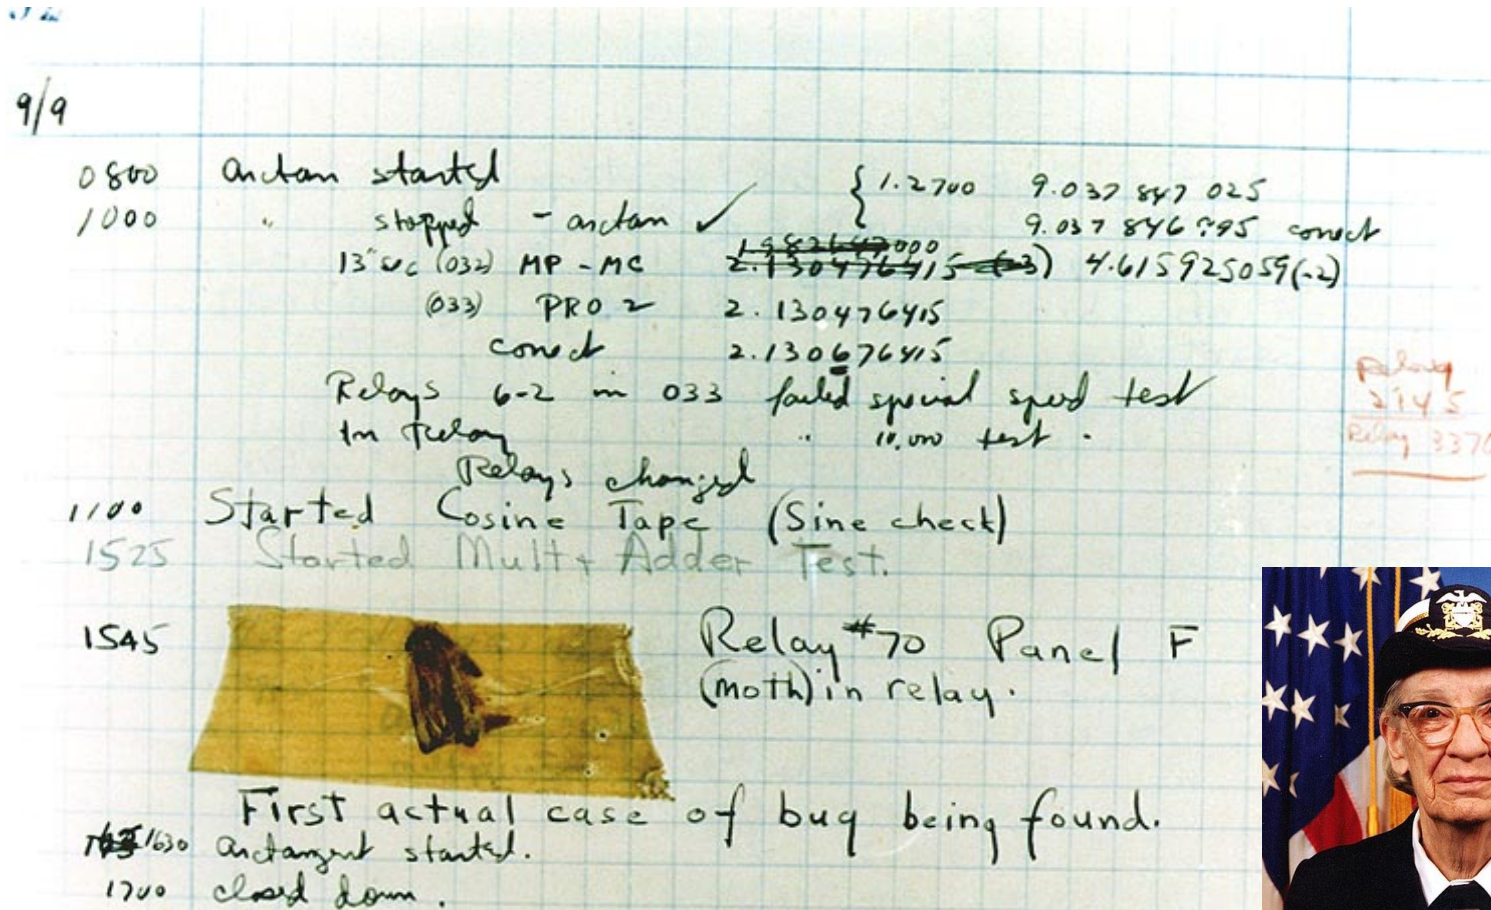 9/9
0800 arctan started { 1.2700 9.037 847 025
1000 " stopped - arctan ✓ 9.037 846 995 correct
13" sec (032) MP - MC 1.982647000 2.130476415 (-3) 4.615925059(-2)
(033) PRO 2 2.130476415
correct 2.130676415
Relays 6-2 in 033 failed special speed test
In relay " 10,000 test .
Relays changed
Relay
2145
Relay 3370
1100 Started Cosine Tape (Sine check)
1525 Started Mult + Adder Test.
1545 Relay #70 Panel F
(moth) in relay.
First actual case of bug being found.
1630 arctangent started.
1700 closed down.